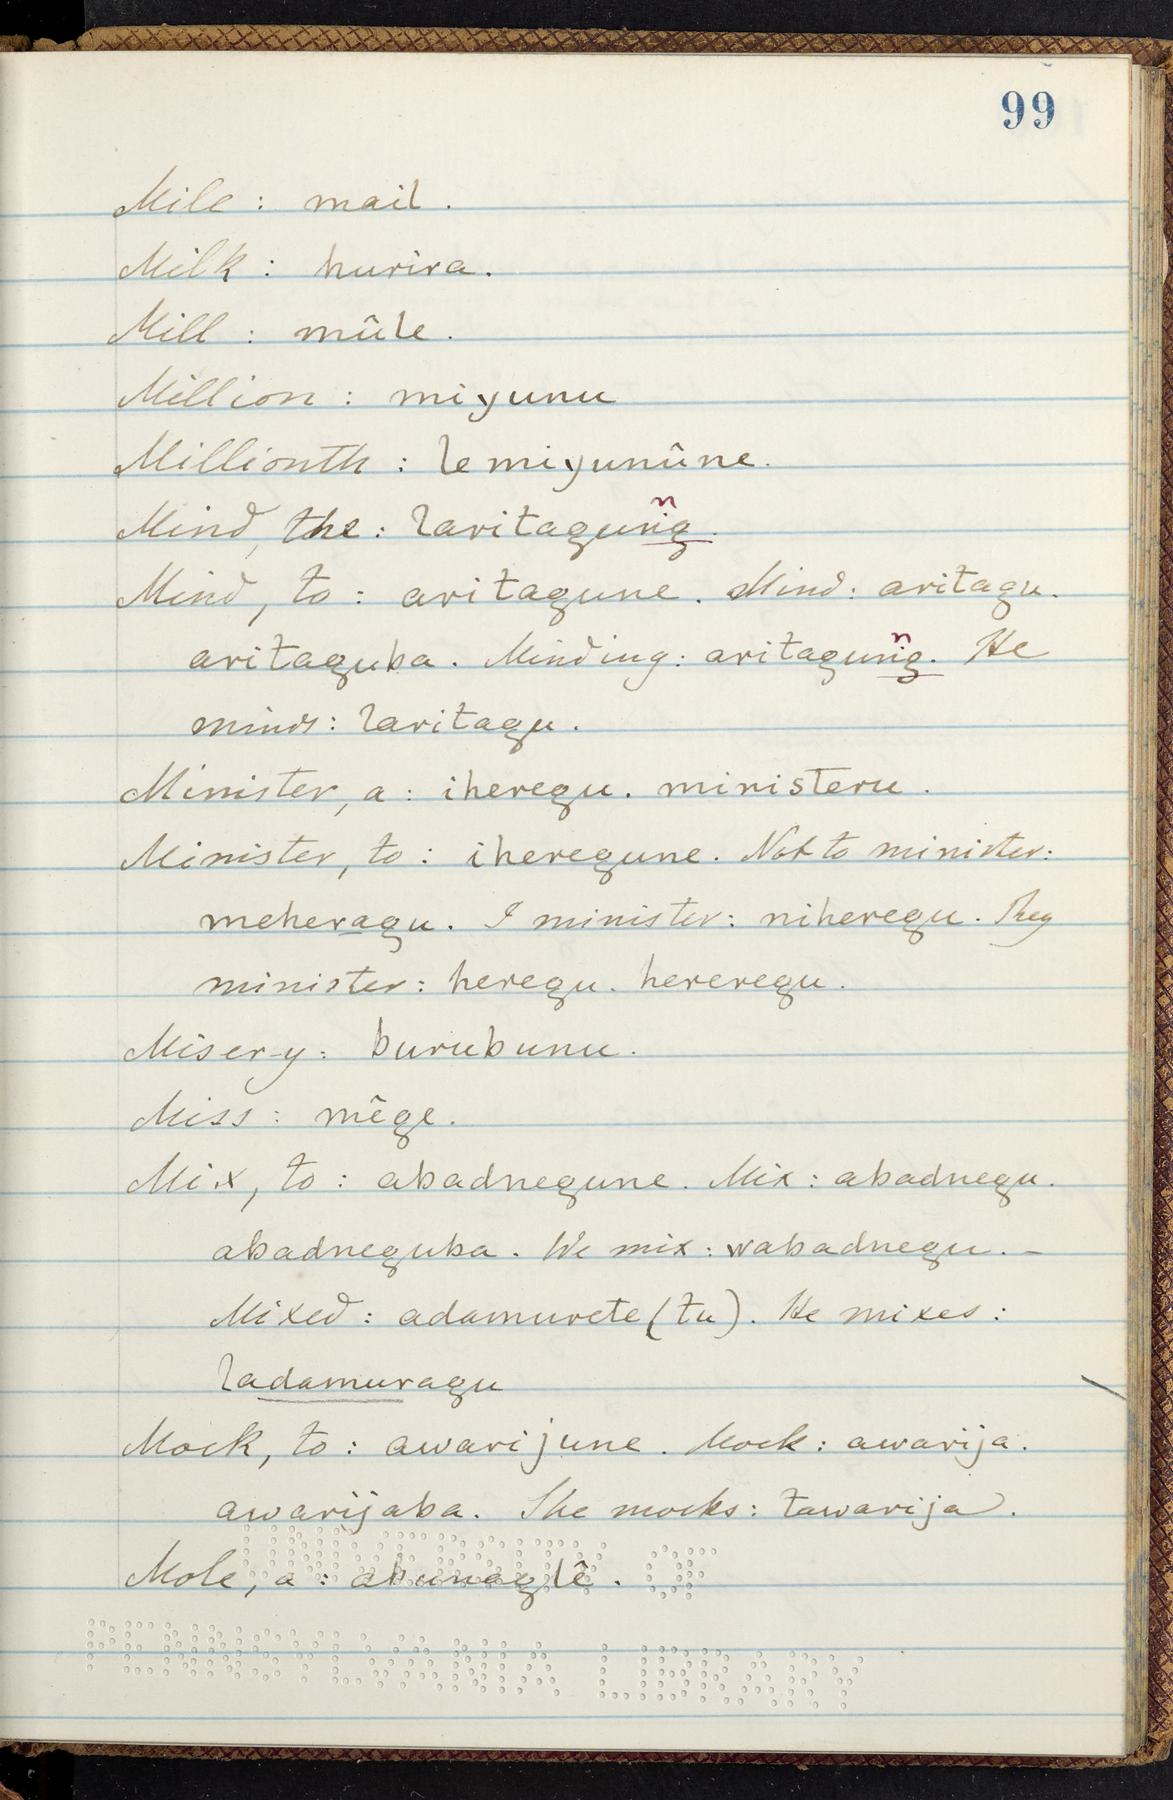 99
Mile : mail .
Milk : hurira .
Mill : mûle .
Million : miyunu
Millionth : lemiyunûne .
Mind, the : laritaguñg .
Mind, to : aritagune . Mind : aritagu .
aritaguba . Minding : aritaguñg . He
minds : laritagu .
Minister, a : iheregu . ministeru .
Minister, to : iheregune . Not to minister :
meheragu . I minister : niheregu . They
minister : heregu . hereregu .
Misery : burubunu .
Miss : mêge .
Mix, to : abadnegune . Mix : abadnegu .
abadneguba . We mix : wabadnegu . –
Mixed : adamurete (tu) . He mixes :
ladamuragu
Mock, to : awarijune . Mock : awarija .
awarijaba . She mocks : tawarija .
Mole, a :
UNIVERSITY OF
PENNSYLVANIA LIBRARY